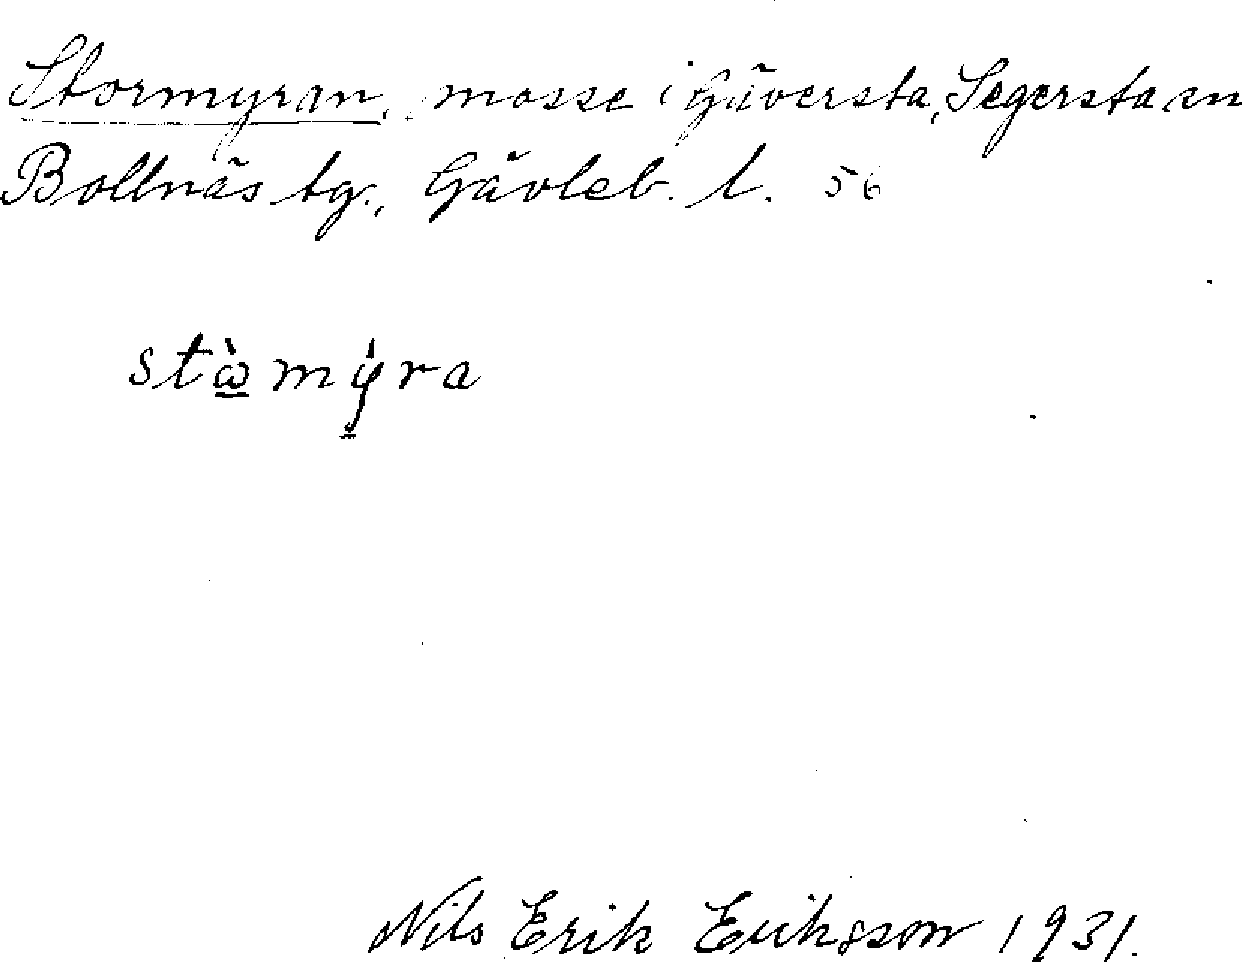 Stormyran, mosse i Gäversta, Segersta sn
Bollnäs tg., Gävleb. l. 56
stὼ̲mý̲ra
Nils Erik Eriksson 1931.